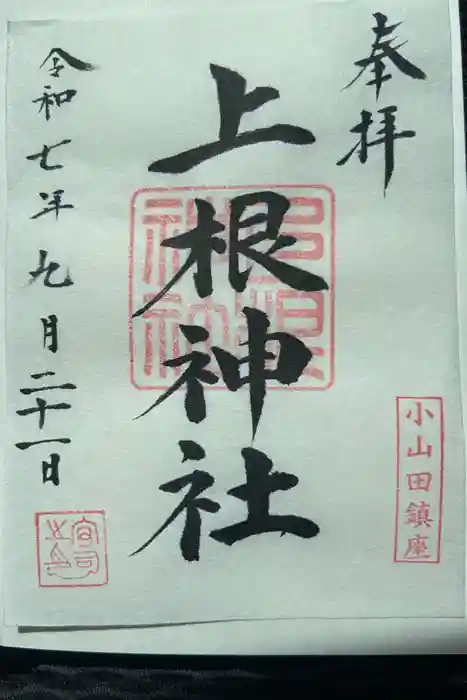 奉拝
上根神社
上根神社
小山田鎮座
令和七年九月二十一日
宮司之印